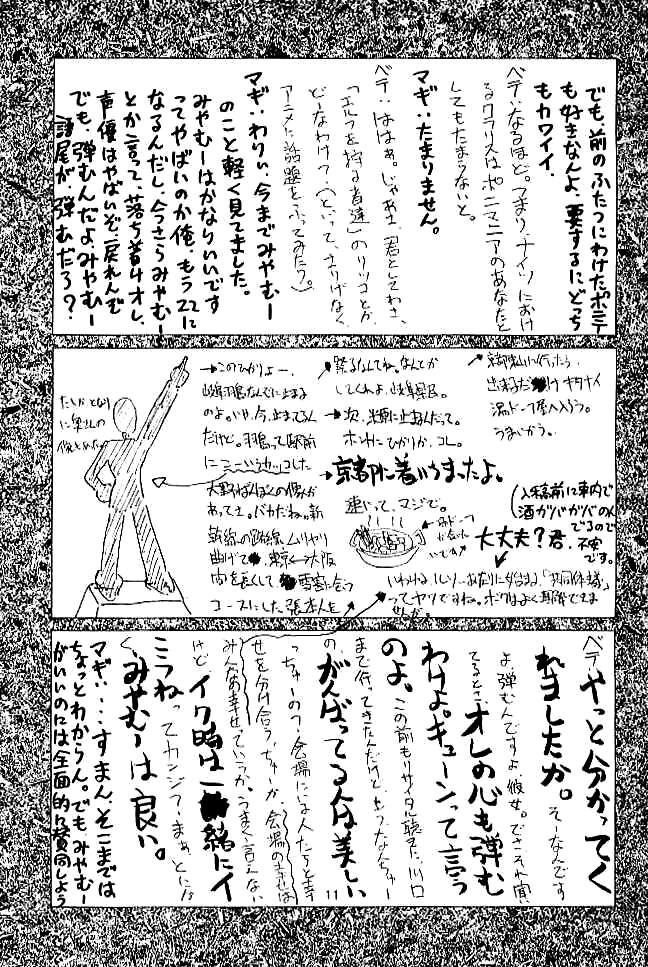 でも、前のふたつにわけたポニテ
も好きなんよ、要するにどっち
もカワイイ。
ベテ:なるほど。つまり、ナイツにおけ
るクラリスはポニマニアのあなたと
してもたまらないと。
マギ:たまりません。
ベテ:ははぁ。じゃあさ、君としてわさ、
「エルフを狩る者達」のリツコとか
どーなわけ?(といって、さりげなく
アニメに話題をふってみたり。)
マギ:わりぃ、今までみやむー
のこと軽く見てました。
みやむーはかなりいいです
ってやばいのか俺、もう22に
なるんだし、今さらみやむー
とか言って、落ち着けオレ、
声優はやばいぞ、戻れんぞ
でも、弾むんだよみやむー
語尾が弾むだろ?
京都駅に行ったら、
出まるだけキタナイ
湯ドーフ屋へ入ろう。
うまいかう。
(入稿前に車内で
酒ガバガバのん
でるので
不安
です。
大丈夫?君、
→このひかりよー、
岐阜羽島なんぞに止まる
のよ。いや、今、止まってるん
だけど。羽島って駅前
にこーいうカッコした
大野ばんぼくの像が
あってさ。バカだね。新
幹線の路線ムリヤリ
曲げて 東京↔大阪
間を長くして 雪害に会う
コースにした張本人を
祭るなんてね。なんとか
してくれよ、岐阜県民。
→次、米原に止まるんだって。
ホントにひかりか、コレ。
→京都に着いちまったよ。
速いって、マジで。
湯ドーフ
たしかとなり
に奥さんの
像とかも
いわゆる、ルソーあたりに始まる、「共同体主義」
ってヤツですね。ボクはよく理解できま
せんが。
ベテ:やっと分かってく
れましたか。そーなんです
よ、弾むんですよ、彼女。でさ、それ聞い
てるとさ、オレの心も弾む
わけよ。キューンって言う
のよ。この前もリサイタル聴きに川口
まで行ってきたんだけど、もうなんちゅー
の、がんばってる人は美しい!!
っちゅーの?会場にいる人たちと幸
せを分け合う、ちゅーか、会場の幸せは
みんなの幸せっていうか。うまく言えない
けど、イク時は一緒にイ
こうねってカンジ?まぁ、とにか
く、みやむーは良い。
マギ:・・・すまん、そこまでは
ちょっとわからん。でも、みやむー
がいいのには全面的に賛同しよう